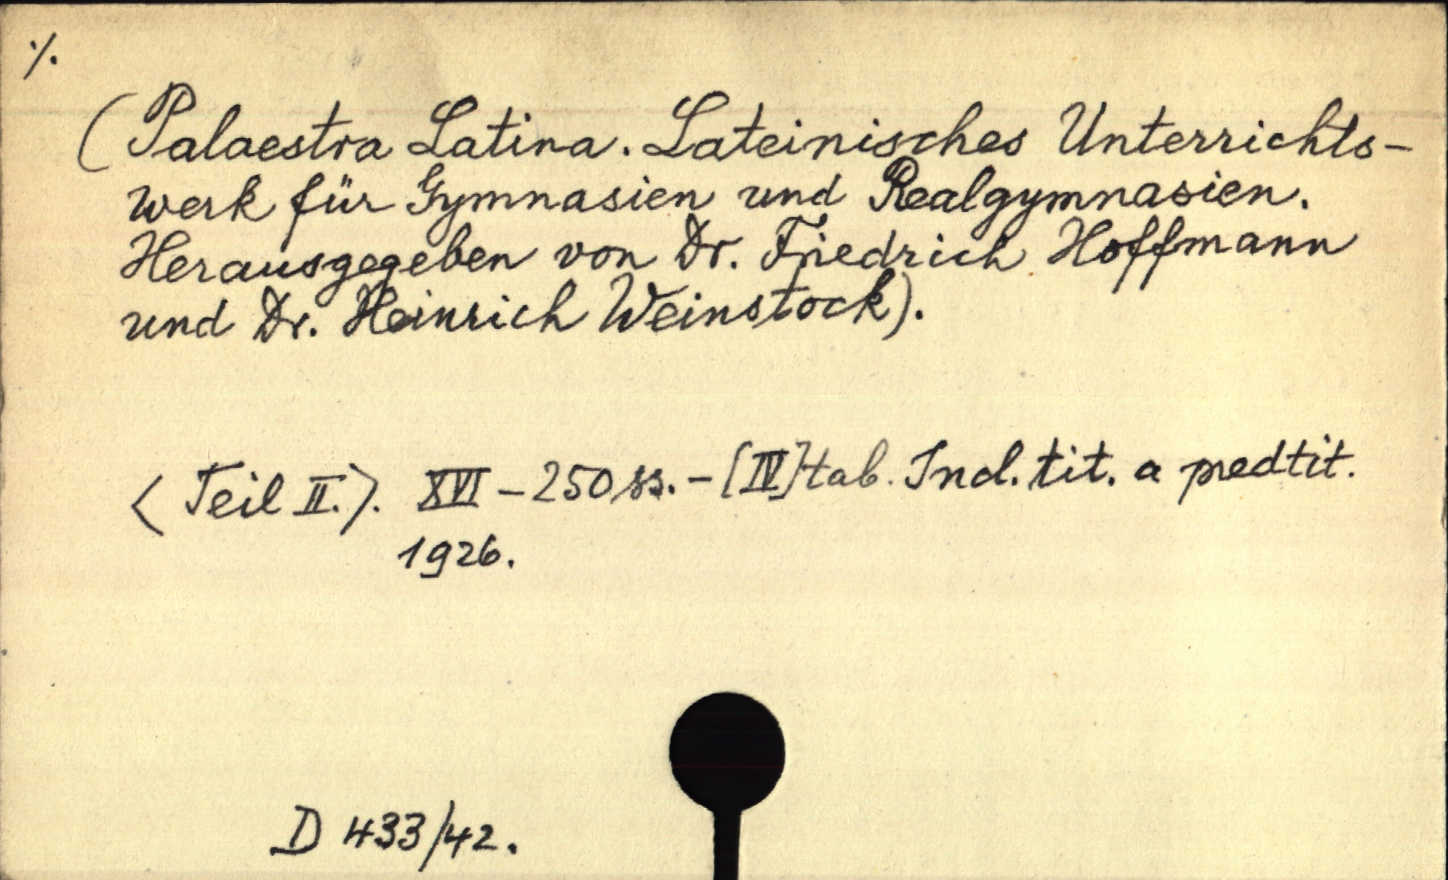 ./.
(Palaestra Latina. Lateinisches Unterrichts-
werk für Gymnasien und Realgymnasien.
Herausgegeben von Dr. Friedrich Hoffmann
und Dr. Heinrich Weinstock).
< Teil II.>. XVI – 250 ss. – [IV] tab. Incl. tit. a predtit.
1926.
D 433/42.